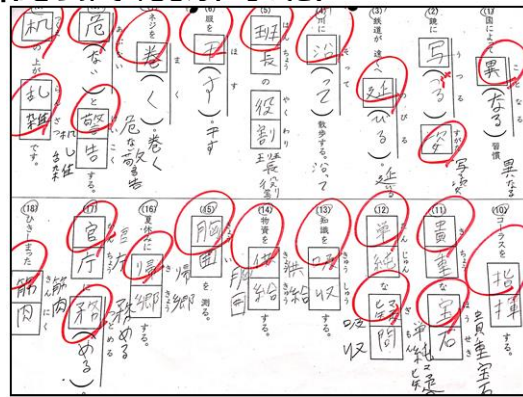 (1) 国によって異(なる)習慣 異なる
(2) 鏡に写(る)姿 写 姿
(3) 鉄道が遠くへ延(びる)。 延
(4) 川に沿(って)散歩する。沿って
(5) 班長の役割 班長役割
服を干(す)。干す
ネジを巻(く)。巻く
危(ない)と警告する。 危な警告
机の上が乱雑です。
(10) コーラスを指揮
(11) 貴重な宝石 貴重宝石
(12) 単純な疑問 単純
(13) 知識を吸収する。 吸収
(14) 物資を供給する。 供給
(15) 胸囲を測る。 胸囲
(16) 夏休みに帰郷する。 帰郷
(17) 官庁に務(める)。 官庁 務める
(18) ひきしまった筋肉 筋肉